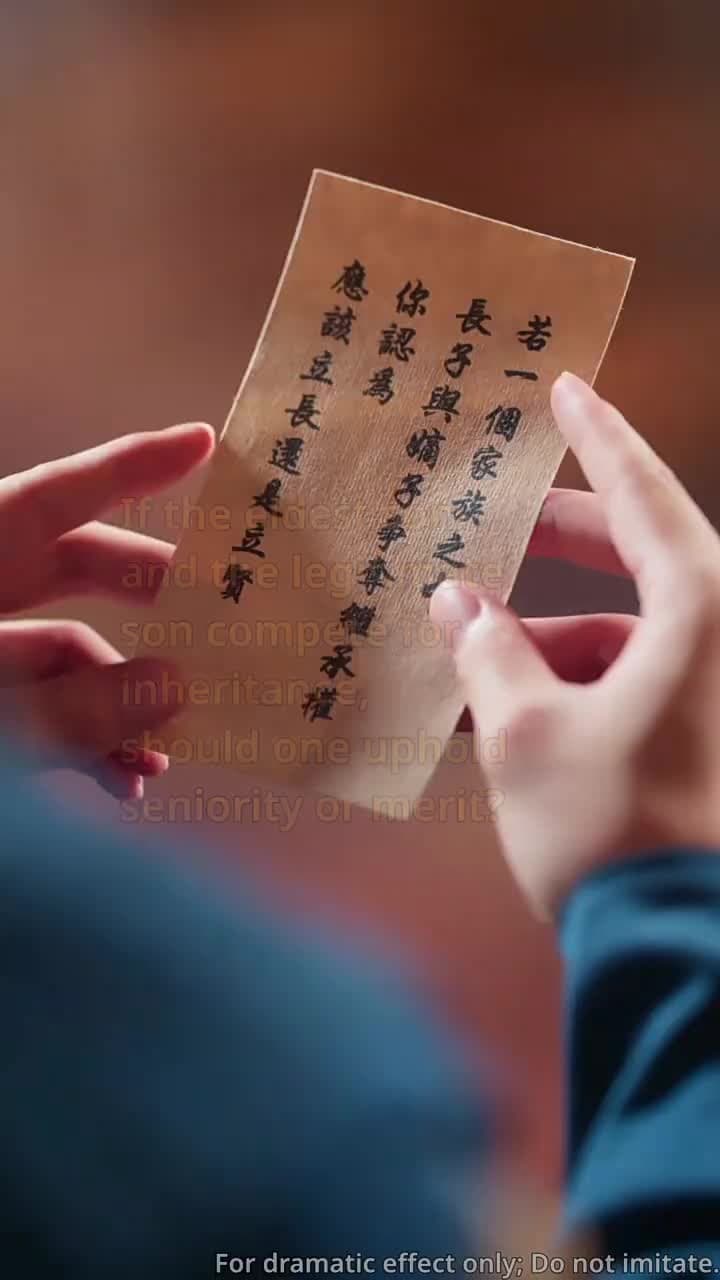 若一個家族之
長子與嫡子爭奪繼承權
你認為
應該立長還是立賢
If the eldest son
and the legitimate
son compete for
inheritance,
should one uphold
seniority or merit?
For dramatic effect only; Do not imitate.